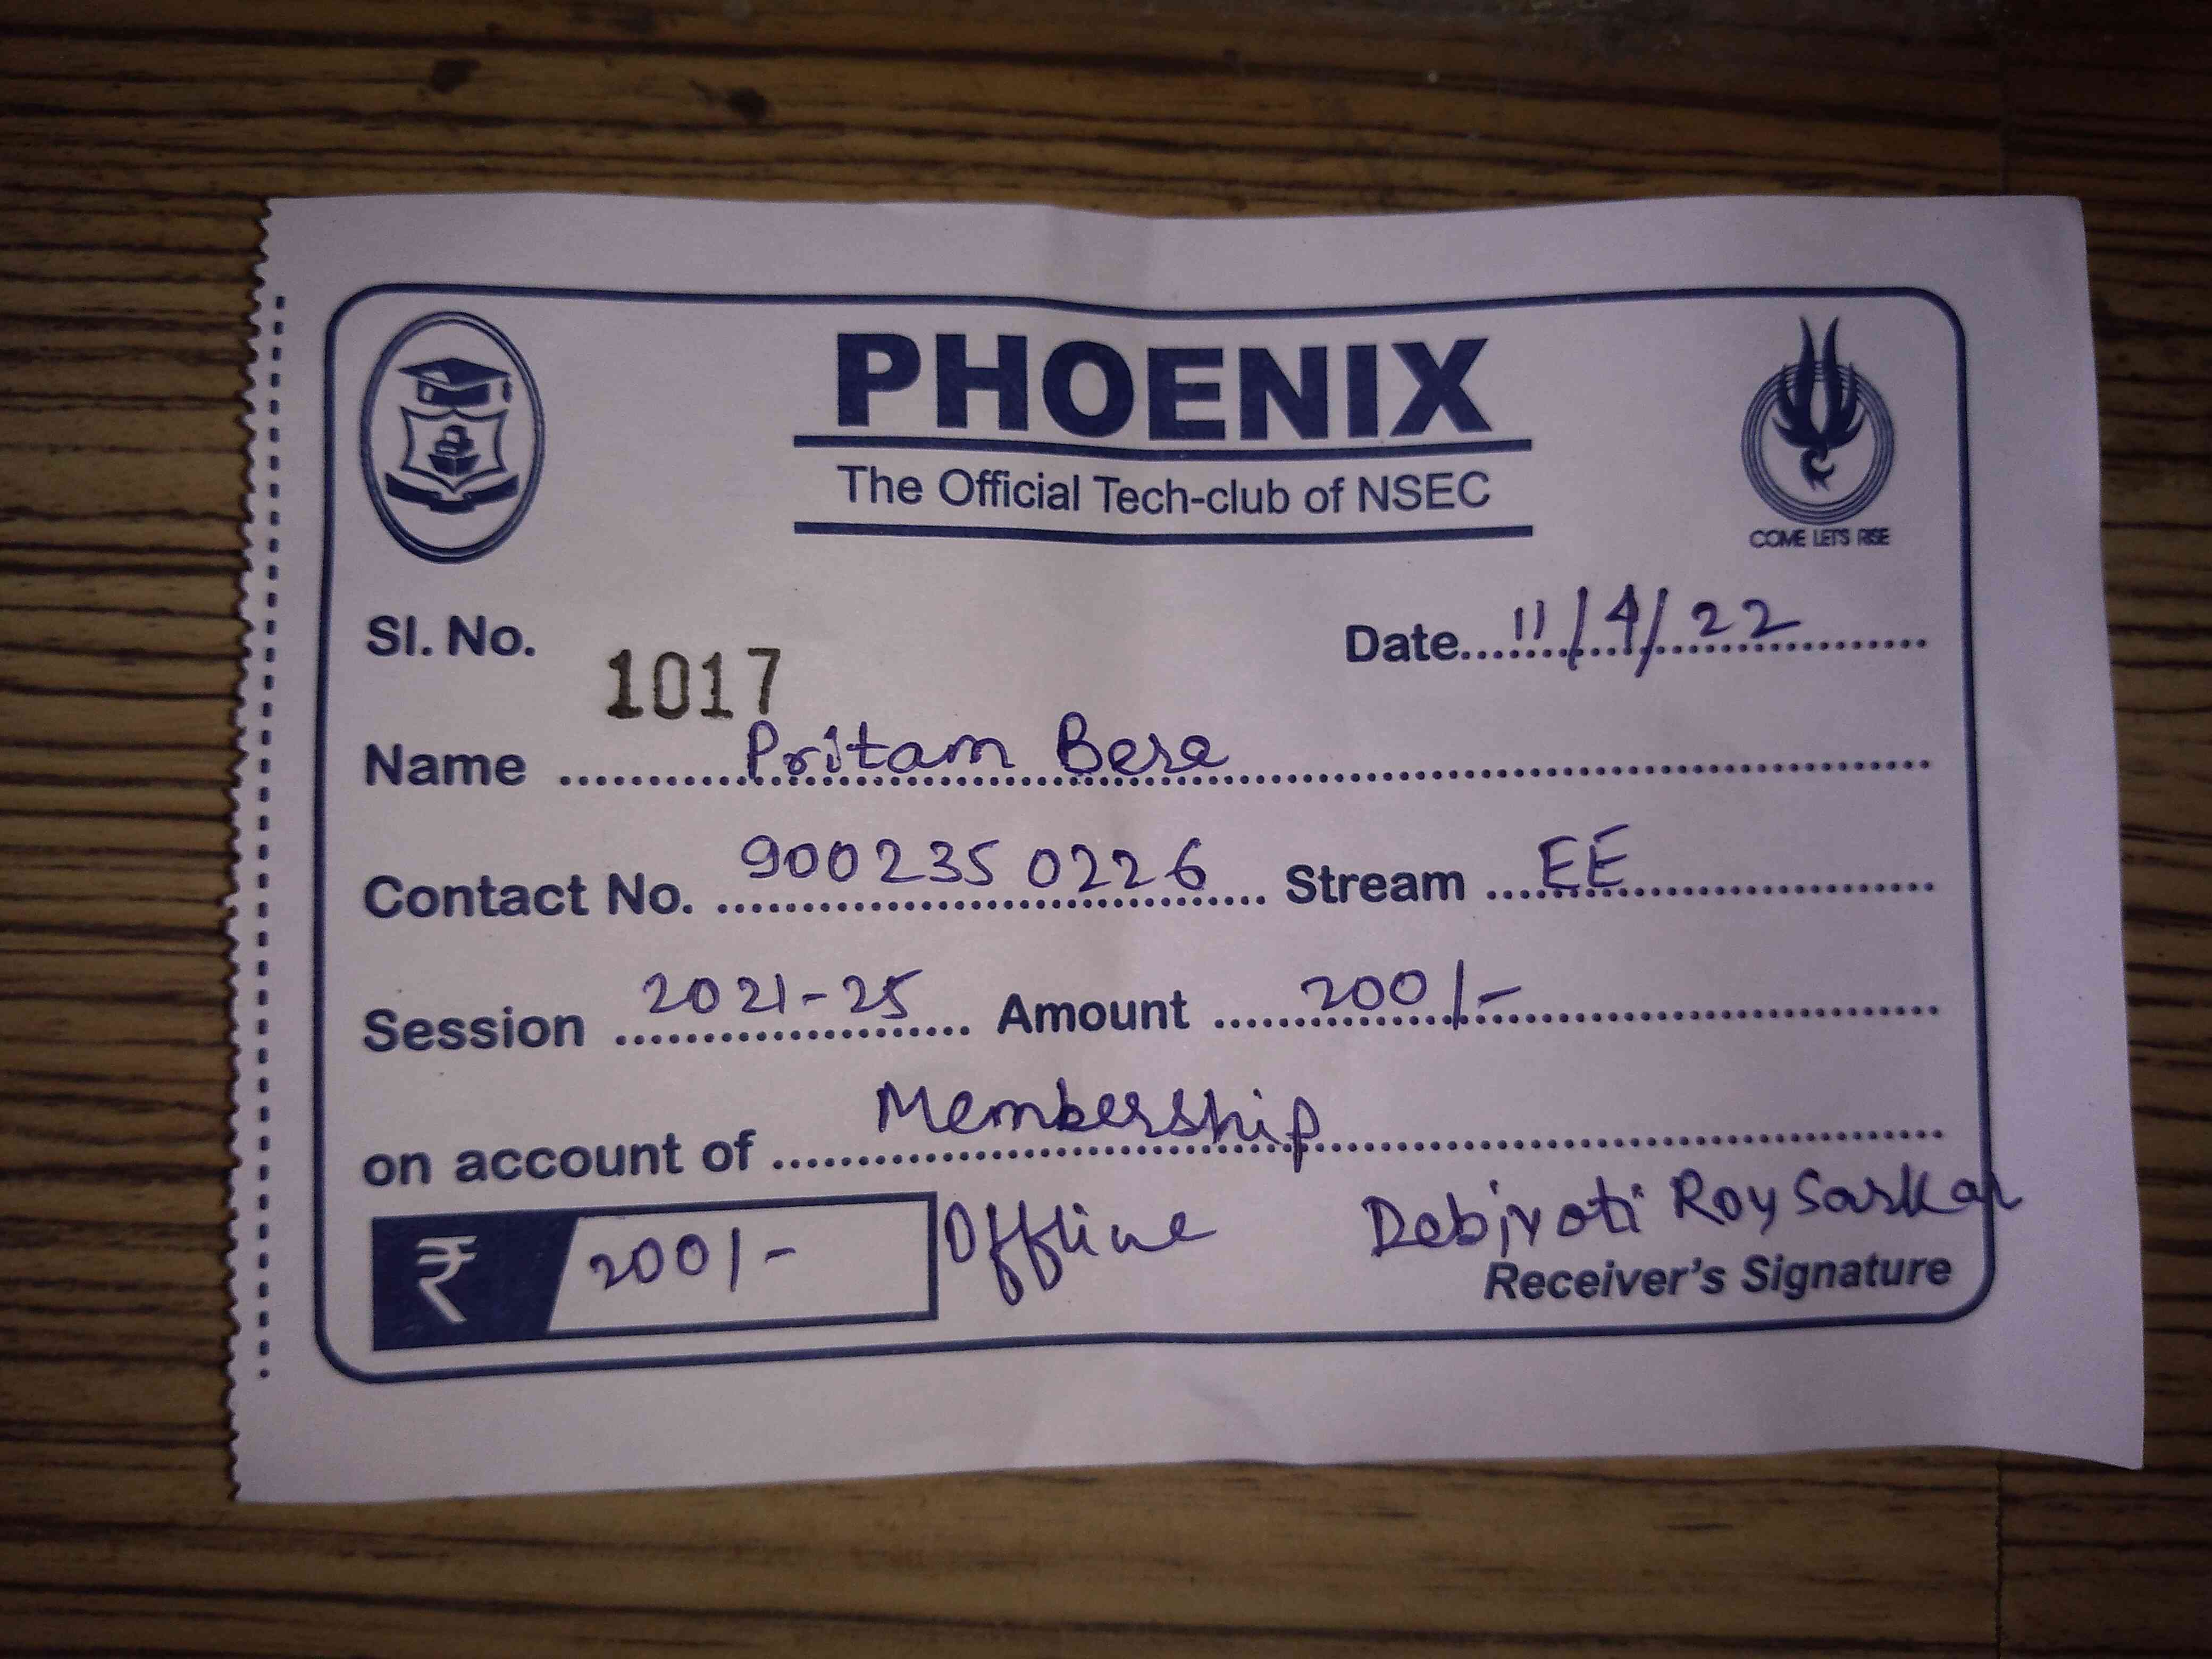 PHOENIX
The Official Tech-club of NSEC
COME LET'S RISE
Sl. No. 1017
Date 11/4/22
Name Pritam Bera
Contact No. 9002350226 Stream EE
Session 2021-25 Amount 200/-
on account of Membership
₹ 200/- Offline Debjyoti Roy Sarkar
Receiver's Signature